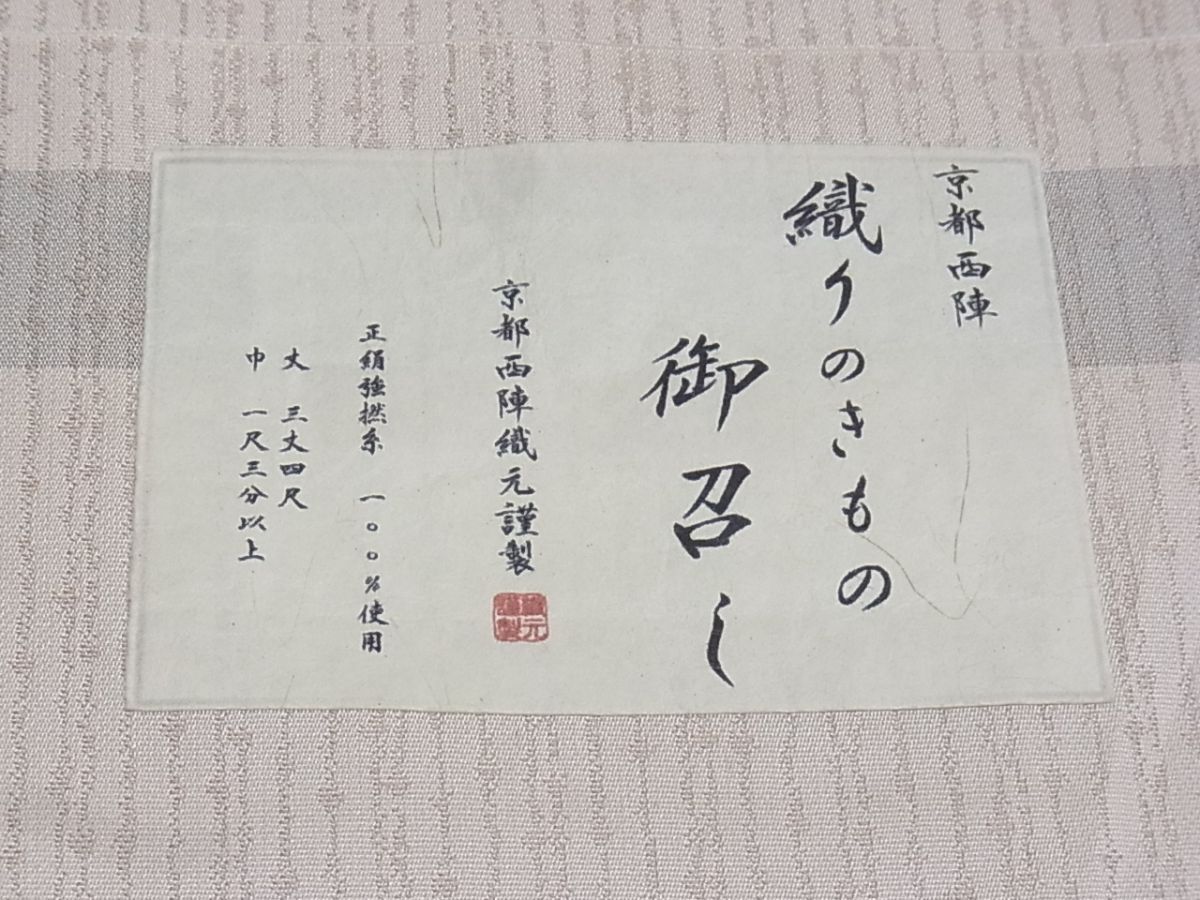 京都西陣
織りのきもの
御召し
京都西陣織元謹製
織元謹製
正絹強撚糸 一〇〇％使用
丈 三丈四尺
巾 一尺三分以上